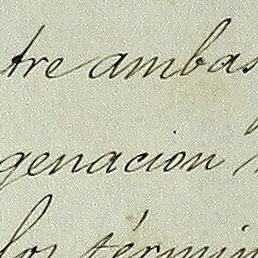 tre ambas
genacion
los términ